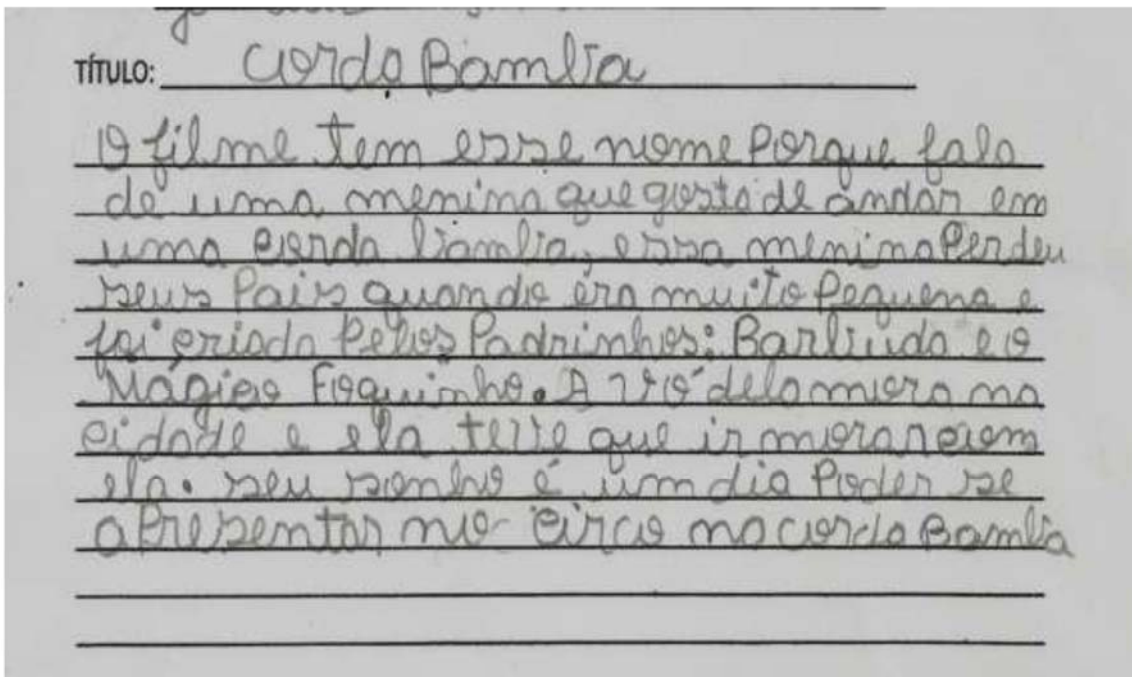 TÍTULO: Corda Bamba
O filme tem esse nome Porque fala
de uma menina que gosta de andar em
uma corda bamba, essa menina Perdeu
seus Pais quando era muito Pequena e
foi criada Pelos Padrinhos: Barbuda e o
Mágico Foguinho. A vó dela mora na
cidade e ela teve que ir morar com
ela. seu sonho é um dia Poder se
aPresentar no circo na corda Bamba